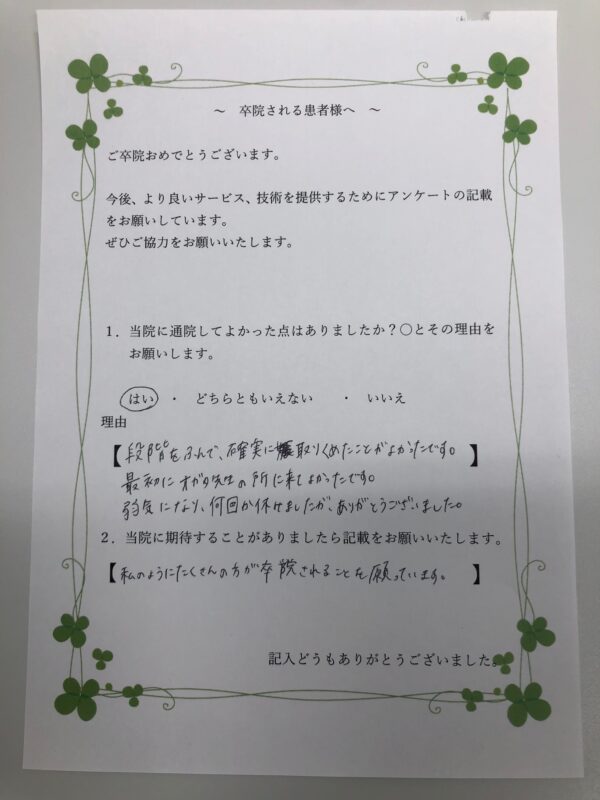 ～ 卒院される患者様へ ～
ご卒院おめでとうございます。
今後、より良いサービス、技術を提供するためにアンケートの記載
をお願いしています。
ぜひご協力をお願いいたします。
1．当院に通院してよかった点はありましたか？○とその理由を
お願いします。
はい ・ どちらともいえない ・ いいえ
理由
【段階をふんで、確実に取りくめたことがよかったです。】
最初にオガタ先生の所に来てよかったです。
弱気になり、何回か休けましたが、ありがとうございました。
2．当院に期待することがありましたら記載をお願いいたします。
【私のようにたくさんの方が卒院されることを願っています。】
記入どうもありがとうございました。